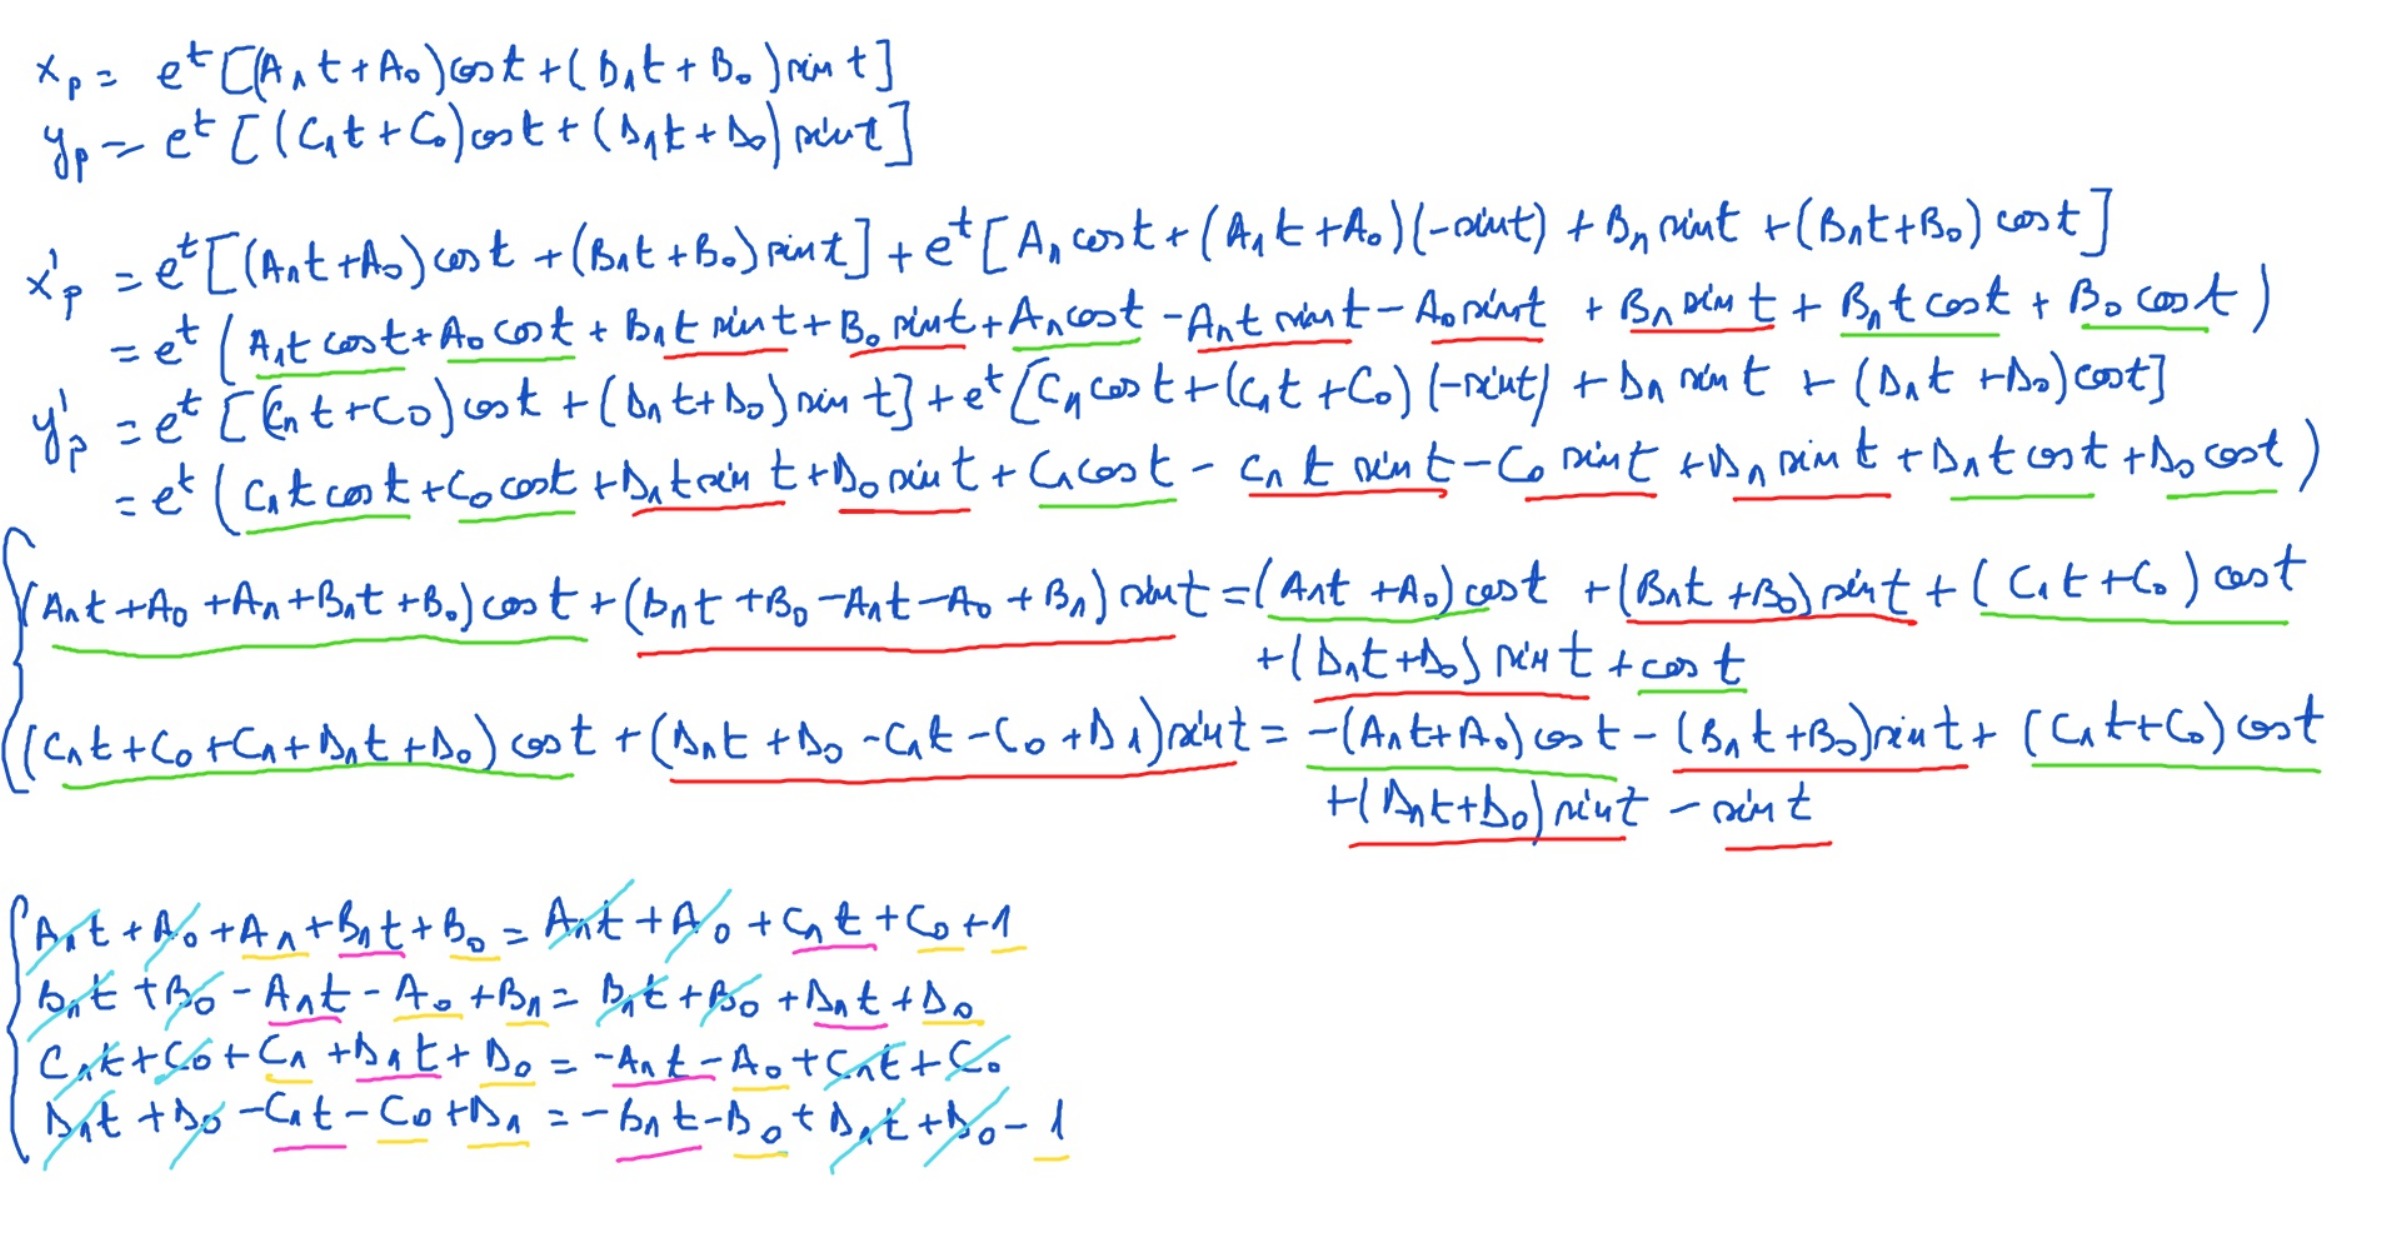 x_p = e^t [(A_1 t + A_0) cos t + (B_1 t + B_0) sin t]
y_p = e^t [(C_1 t + C_0) cos t + (D_1 t + D_0) sin t]
x'_p = e^t [(A_1 t + A_0) cos t + (B_1 t + B_0) sin t] + e^t [A_1 cos t + (A_1 t + A_0)(-sin t) + B_1 sin t + (B_1 t + B_0) cos t]
= e^t (A_1 t cos t + A_0 cos t + B_1 t sin t + B_0 sin t + A_1 cos t - A_1 t sin t - A_0 sin t + B_1 sin t + B_1 t cos t + B_0 cos t)
y'_p = e^t [(C_1 t + C_0) cos t + (D_1 t + D_0) sin t] + e^t [C_1 cos t + (C_1 t + C_0)(-sin t) + D_1 sin t + (D_1 t + D_0) cos t]
= e^t (C_1 t cos t + C_0 cos t + D_1 t sin t + D_0 sin t + C_1 cos t - C_1 t sin t - C_0 sin t + D_1 sin t + D_1 t cos t + D_0 cos t)
(A_1 t + A_0 + A_1 + B_1 t + B_0) cos t + (B_1 t + B_0 - A_1 t - A_0 + B_1) sin t = (A_1 t + A_0) cos t + (B_1 t + B_0) sin t + (C_1 t + C_0) cos t
+ (D_1 t + D_0) sin t + cos t
(C_1 t + C_0 + C_1 + D_1 t + D_0) cos t + (D_1 t + D_0 - C_1 t - C_0 + D_1) sin t = -(A_1 t + A_0) cos t - (B_1 t + B_0) sin t + (C_1 t + C_0) cos t
+ (D_1 t + D_0) sin t - sin t
A_1 t + A_0 + A_1 + B_1 t + B_0 = A_1 t + A_0 + C_1 t + C_0 + 1
B_1 t + B_0 - A_1 t - A_0 + B_1 = B_1 t + B_0 + D_1 t + D_0
C_1 t + C_0 + C_1 + D_1 t + D_0 = -A_1 t - A_0 + C_1 t + C_0
D_1 t + D_0 - C_1 t - C_0 + D_1 = -B_1 t - B_0 + D_1 t + D_0 - 1